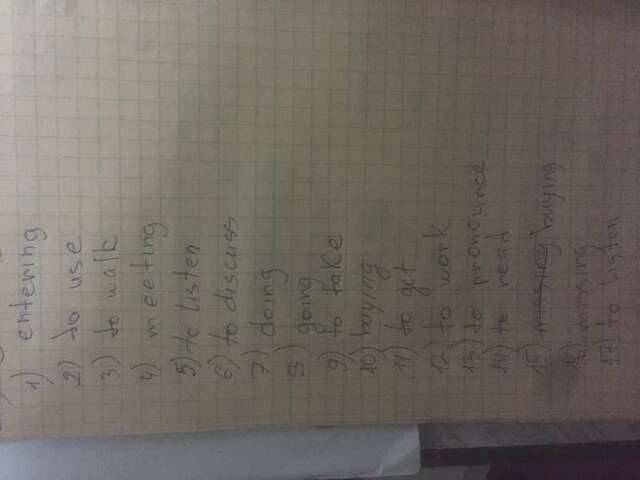 1) entering
2) to use
3) to walk
4) meeting
5) to listen
6) to discuss
7) doing
8) going
9) to take
10) buying
11) to get
12) to work
13) to pronounce
14) to read
15) missing buying
16) missing
17) to listen